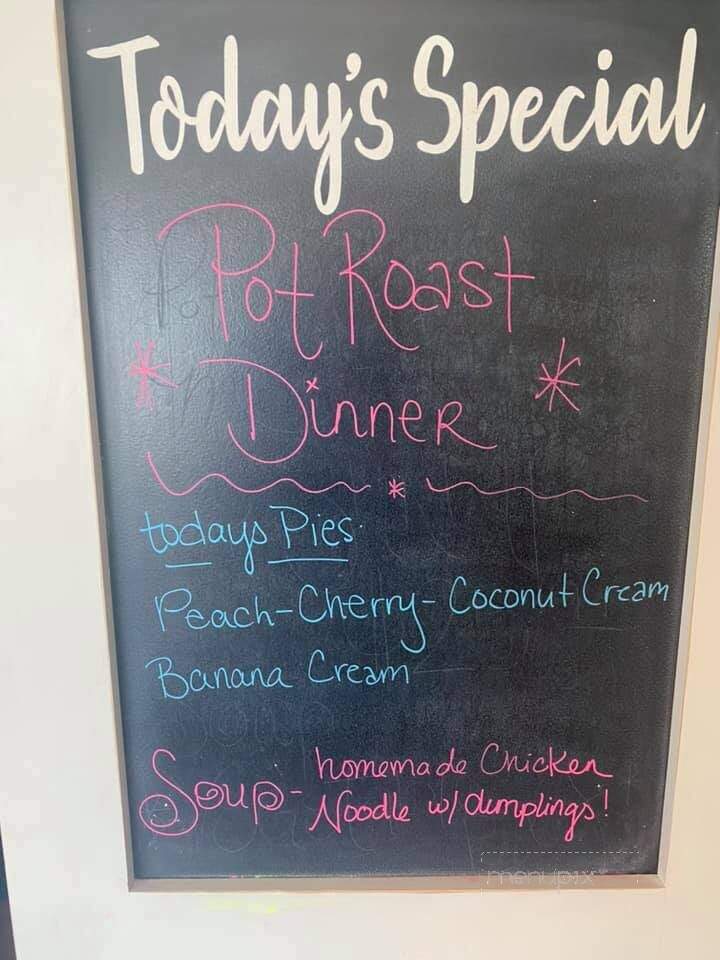 Today's Special
Pot Roast
* Dinner *
*
todays Pies
Peach-Cherry-Coconut Cream
Banana Cream
Soup- homemade Chicken
Noodle w/ dumplings!
menupix